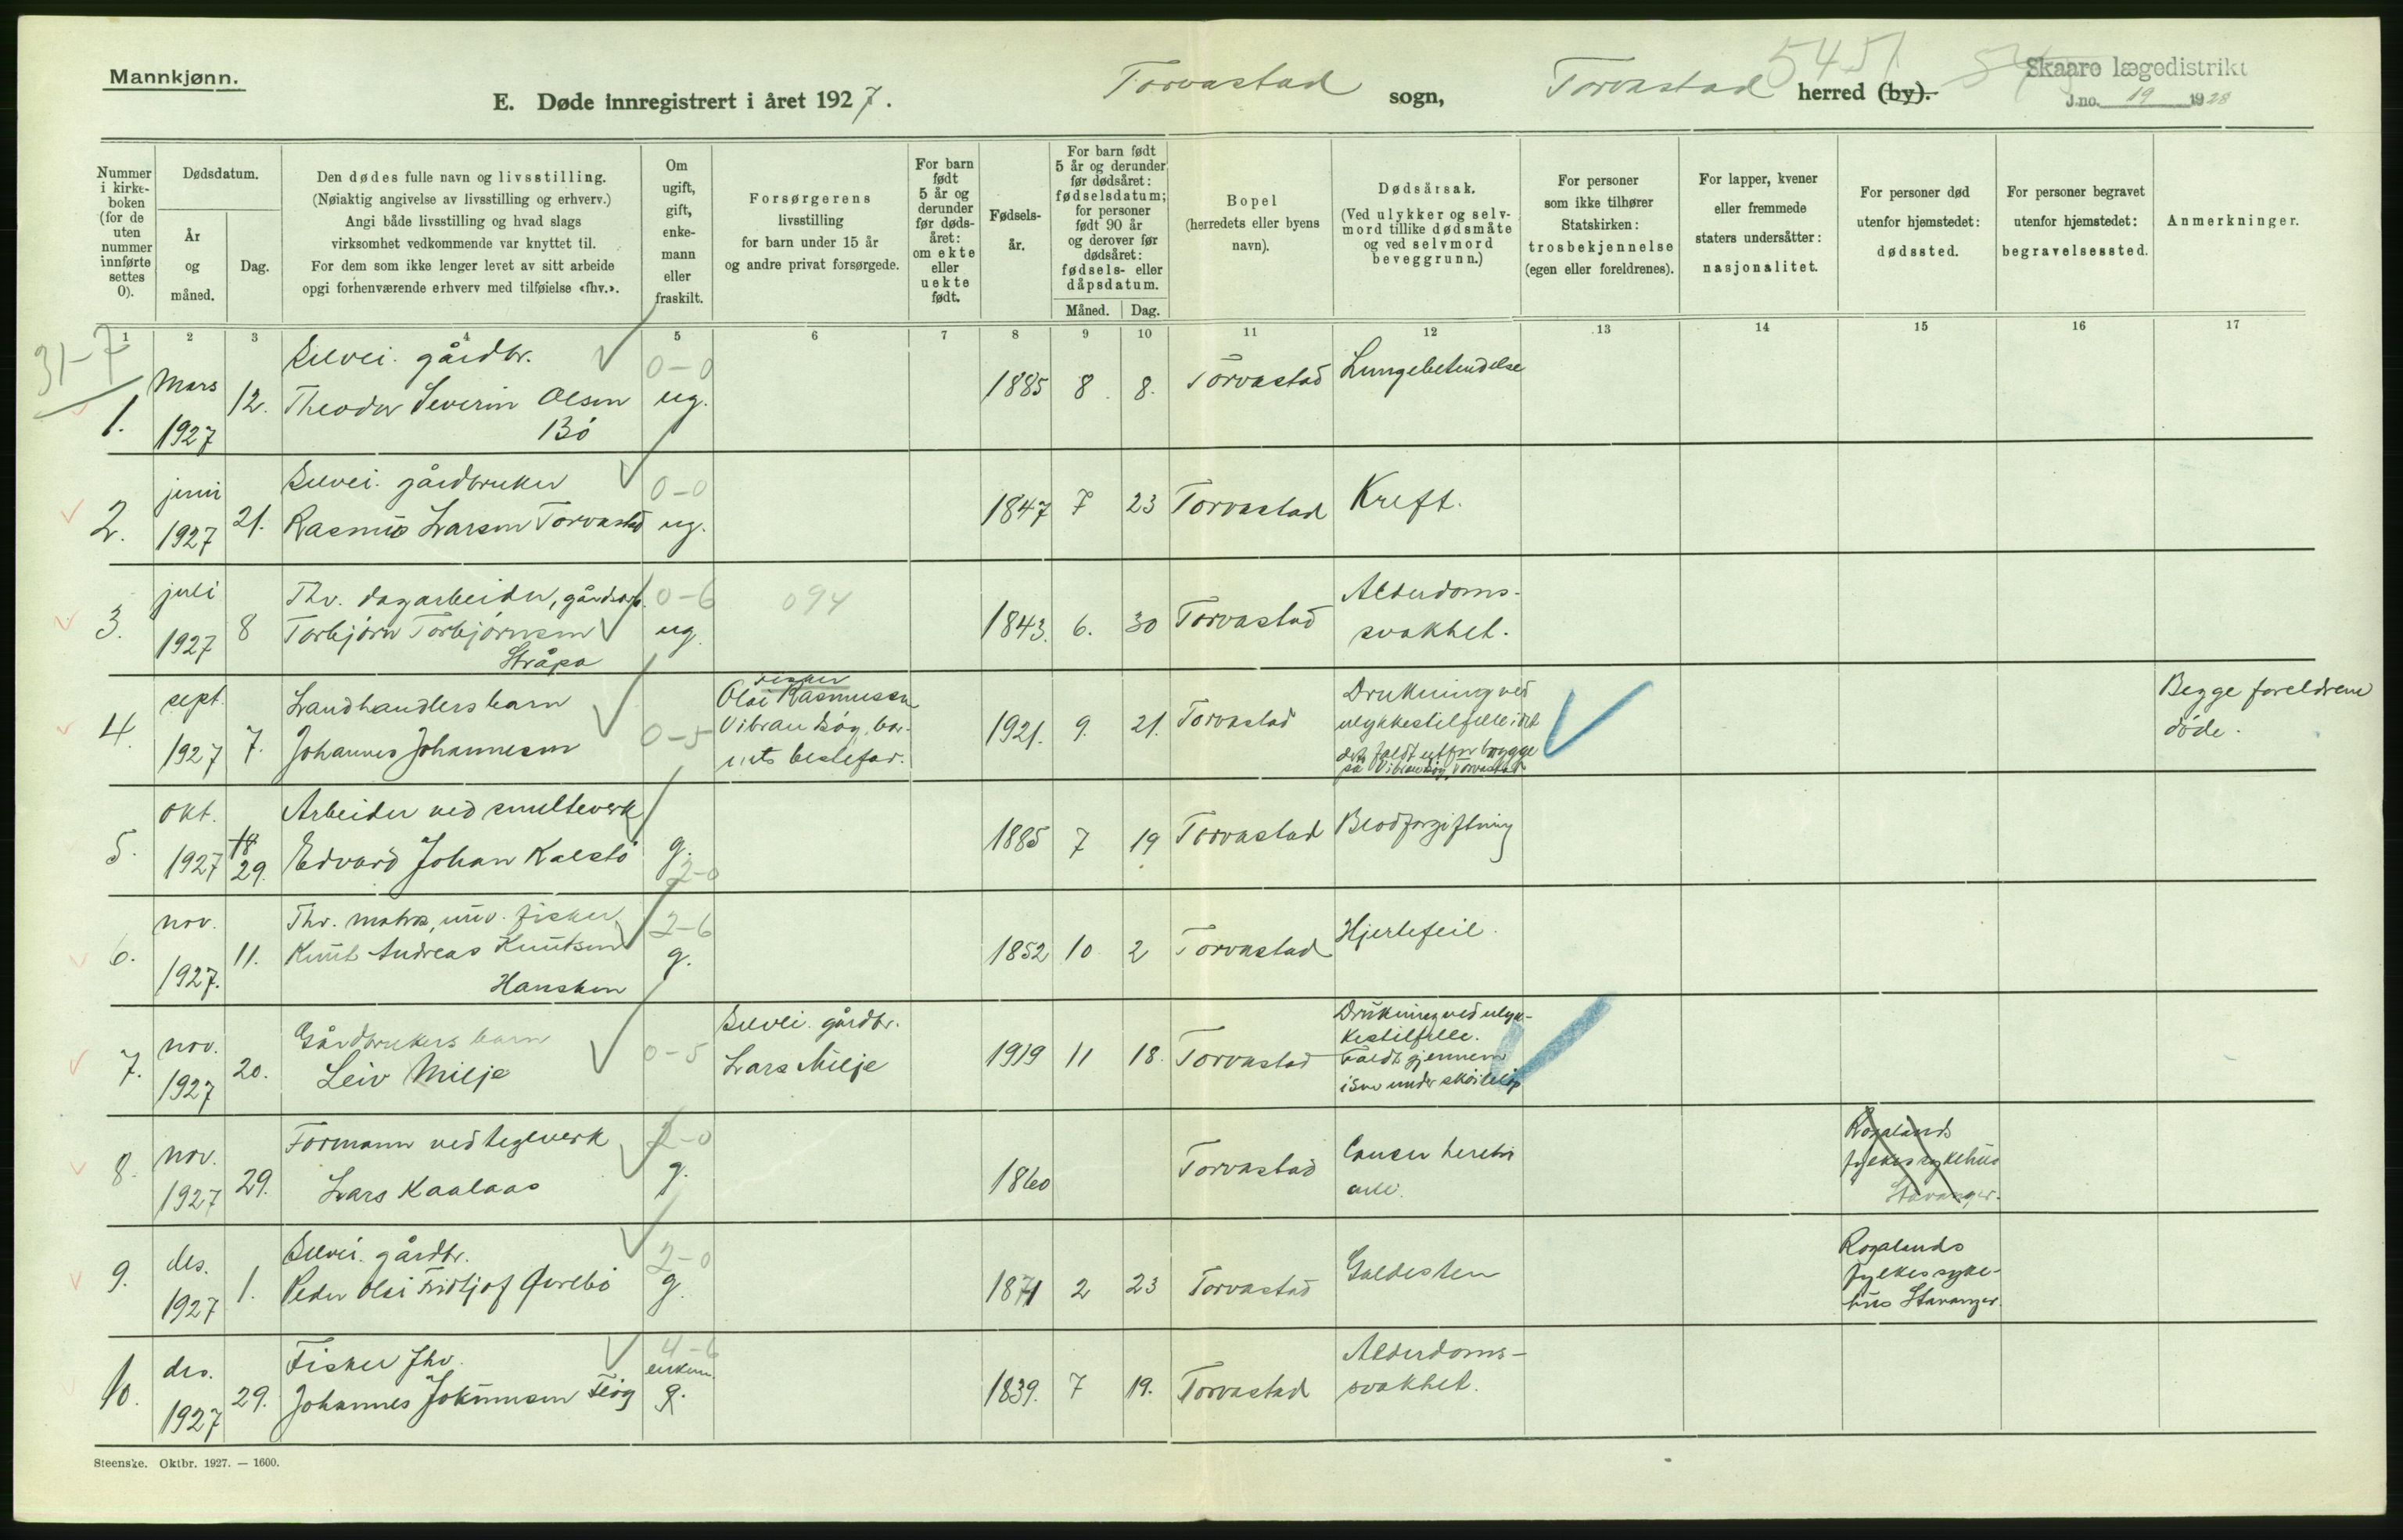 Mannkjønn.
E. Døde innregistrert i året 1927. Torvastad sogn, Torvastad herred (by).
5451
Skaare lægedistrikt
J.no. 19 1928
Nummer i kirke-boken (for de uten nummer innførte settes 0).
Dødsdatum.
År og måned.
Dag.
Den dødes fulle navn og livsstilling.
(Nøiaktig angivelse av livsstilling og erhverv.)
Angi både livsstilling og hvad slags
virksomhet vedkommende var knyttet til.
For dem som ikke lenger levet av sitt arbeide
opgi forhenværende erhverv med tilføielse «fhv.».
Om ugift, gift, enke-mann eller fraskilt.
Forsørgerens
livsstilling
for barn under 15 år
og andre privat forsørgede.
For barn født 5 år og derunder før døds-året: om ekte eller uekte født.
Fødsels-år.
For barn født 5 år og derunder før dødsåret: fødselsdatum; for personer født 90 år og derover før dødsåret: fødsels- eller dåpsdatum.
Måned. Dag.
Bopel
(herredets eller byens navn).
Dødsårsak.
(Ved ulykker og selv-mord tillike dødsmåte og ved selvmord beveggrunn.)
For personer som ikke tilhører Statskirken: trosbekjennelse (egen eller foreldrenes).
For lapper, kvener eller fremmede staters undersåtter: nasjonalitet.
For personer død utenfor hjemstedet: dødssted.
For personer begravet utenfor hjemstedet: begravelsessted.
Anmerkninger.
1 2 3 4 5 6 7 8 9 10 11 12 13 14 15 16 17
31-7
1. Mars 1927 12. Selvei. gårdbr. Theodor Severin Olsen Bö 0-0 ug. 1885 8. 8. Torvastad Lungebetendelse
2. juni 1927 21. Selvei. gårdbruker Rasmus Larsen Torvastad 0-0 ug. 1847 7 23 Torvastad Kreft.
3. juli 1927 8 Fhv. dagarbeider, gårdsarb. Torbjörn Torbjörnsen Stråpa 0-6 ug. 094 1843. 6. 30 Torvastad Alderdoms-svakhet.
4. sept. 1927 7. Landhandlers barn Johannes Johannesen 0-5 fisker Olai Rasmussen Vibrandsöy, bar-nets bestefar. 1921. 9. 21. Torvastad Drukning ved ulykkestilfelle idet det faldt utfor brygge på Vibrandsöy, Torvastad Begge foreldrene döde.
5. okt. 1927 18 29. Arbeider ved smelteverk Edvard Johan Kalstö g. 2-0 1885 7 19 Torvastad Blodforgiftning
6. nov. 1927. 11. Fhv. matros, fisker Knut Andreas Knutsen Hansken 2-6 g. 1852 10 2 Torvastad Hjertefeil.
7. nov. 1927 20. Gårdbrukers barn Leiv Milje 0-5 Selvei. gårdbr. Lars Milje 1919 11 18. Torvastad Drukning ved ulyk-kestilfelle. Faldt gjennem isen under sköiteløp
8. nov. 1927 29. Formann ved teglverk Lars Kaalaas 2-0 g. 1860 Torvastad Cancer Rogalands fylkessykehus Stavanger.
9. des. 1927 1. Selvei. gårdbr. Peder Olai Fridtjof Qvalbö 2-0 g. 1871 2 23 Torvastad Galdesten Rogalands fylkessyke-hus Stavanger.
10. des. 1927 29. Fisker fhv. Johannes Johannesen Feöy 4-6 enkem. g. 1839. 7 19. Torvastad Alderdoms-svakhet.
Steenske. Oktbr. 1927. — 1600.